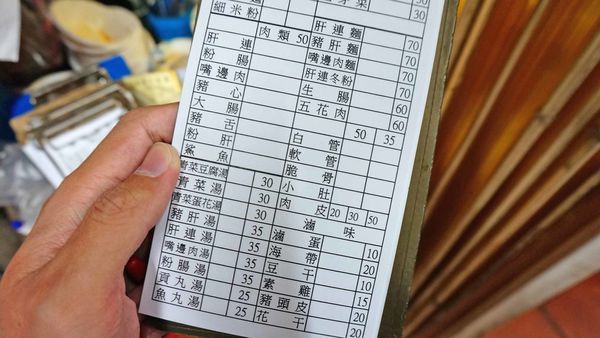 細米粉
肉類 50
肝連
粉腸
嘴邊肉
豬心
大腸
豬舌
粉肝
鯊魚
青菜豆腐湯 30
青菜湯 30
青菜蛋花湯 30
豬肝湯 35
肝連湯 35
嘴邊肉湯 35
粉腸湯 35
貢丸湯 25
魚丸湯 25
菜 30
肝連麵 70
豬肝麵 70
嘴邊肉麵 70
肝連冬粉 70
生腸 60
五花肉 60
50 35
白管
軟管
脆骨
小肚
肉皮 20 30 50
滷味
滷蛋 10
海帶 20
豆干 10
素雞 15
豬頭皮 20
花干 20